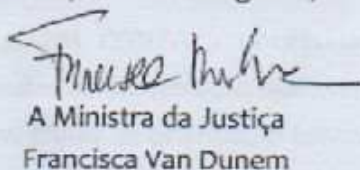 A Ministra da Justiça
Francisca Van Dunem